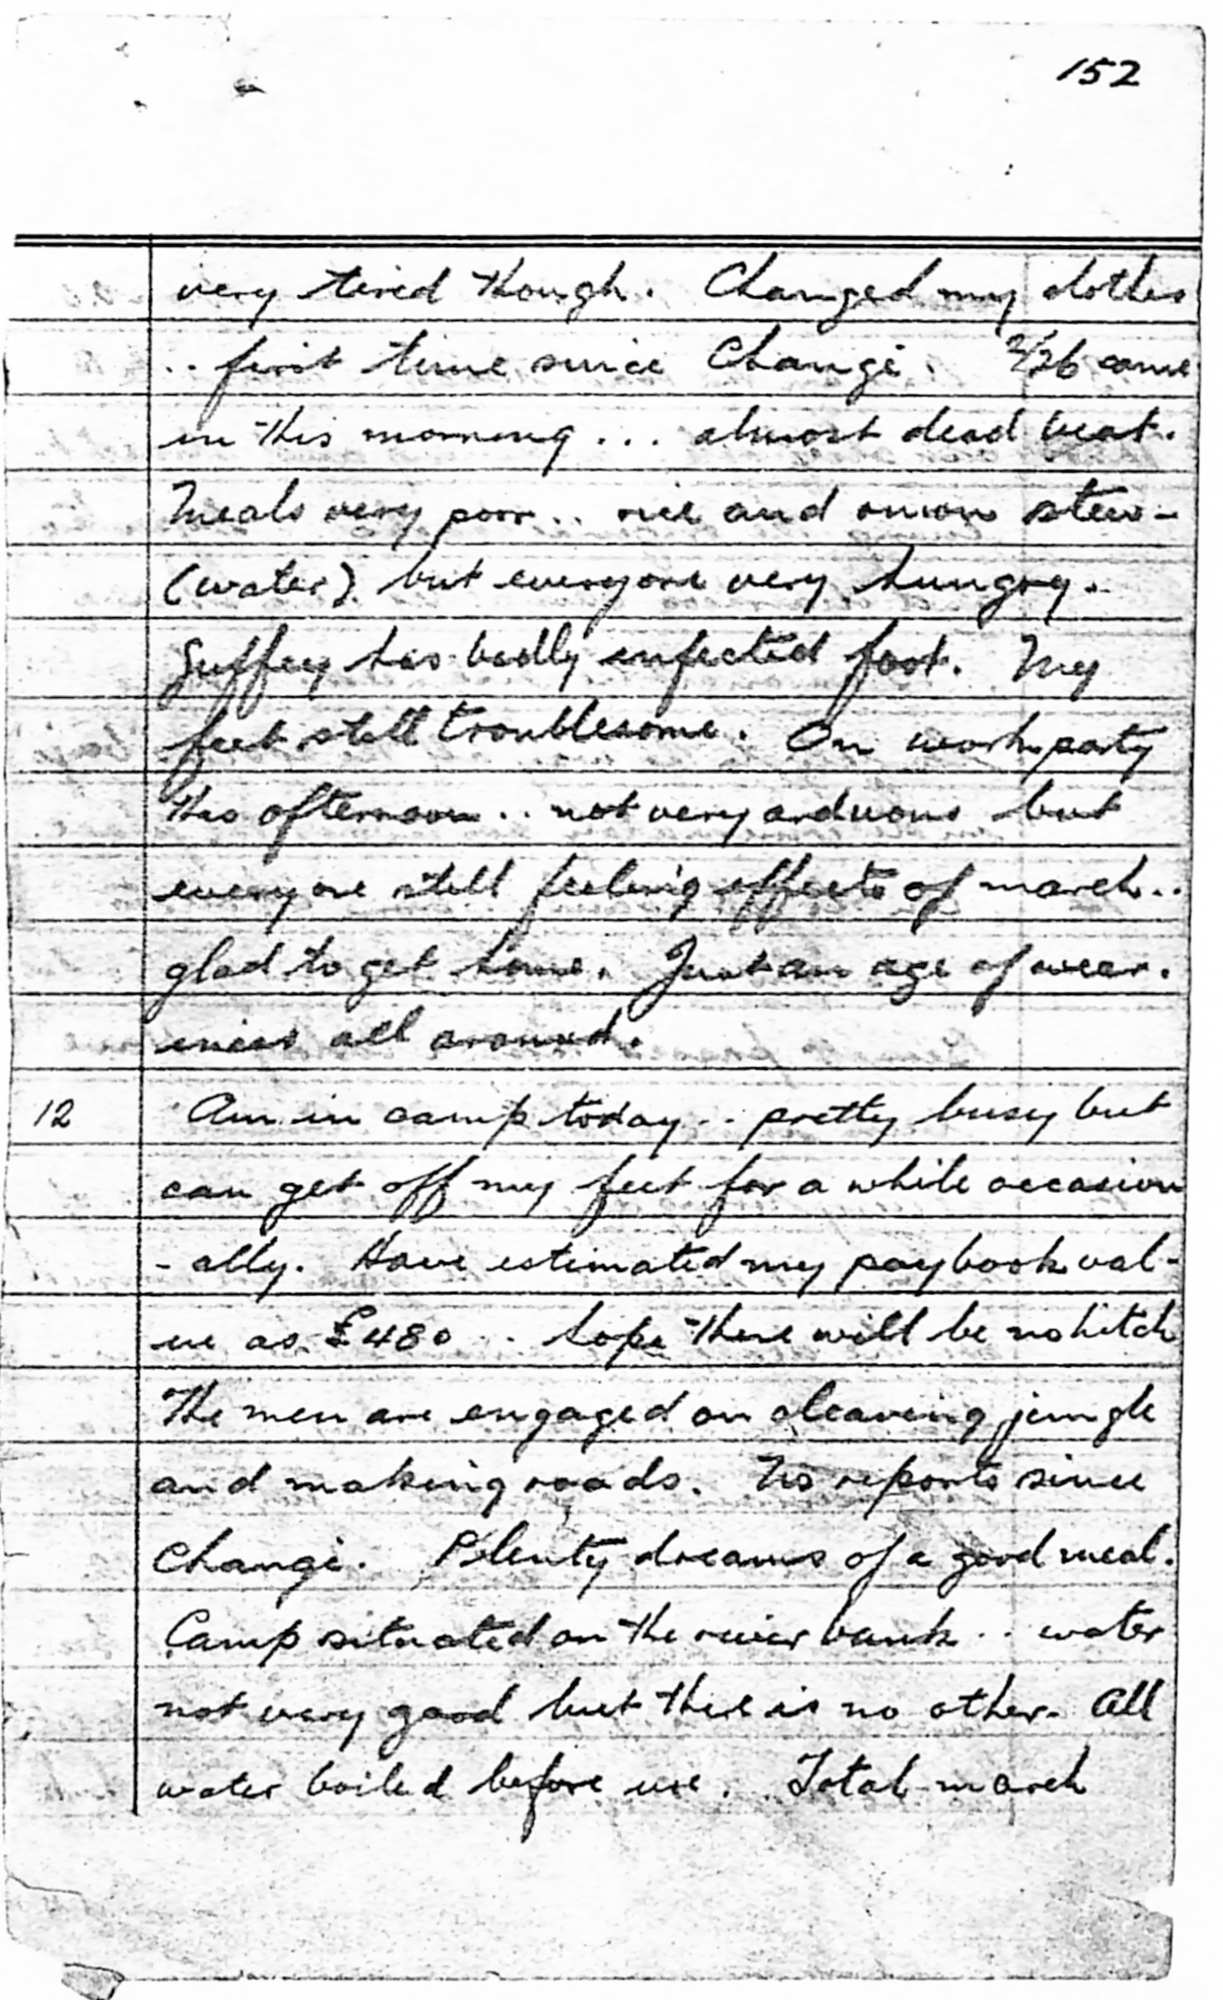 152
very tired though. Changed my clothes
.. first time since Changi. 2/26 came
in this morning ... almost dead beat.
Meals very poor .. rice and onion stew-
(water) but everyone very hungry.
Guffey has badly infected foot. My
feet still troublesome. On work party
this afternoon .. not very arduous but
everyone still feeling effects of march ..
glad to get home. Just an age of wear.
iness all around.
12 Am in camp today .. pretty busy but
can get off my feet for a while occasion
- ally. Have estimated my paybook val-
ue as £480 .. hope there will be no hitch
The men are engaged on clearing jungle
and making roads. No reports since
Changi. Plenty dreams of a good meal.
Camp situated on the river bank .. water
not very good but there is no other. All
water boiled before use. Total march